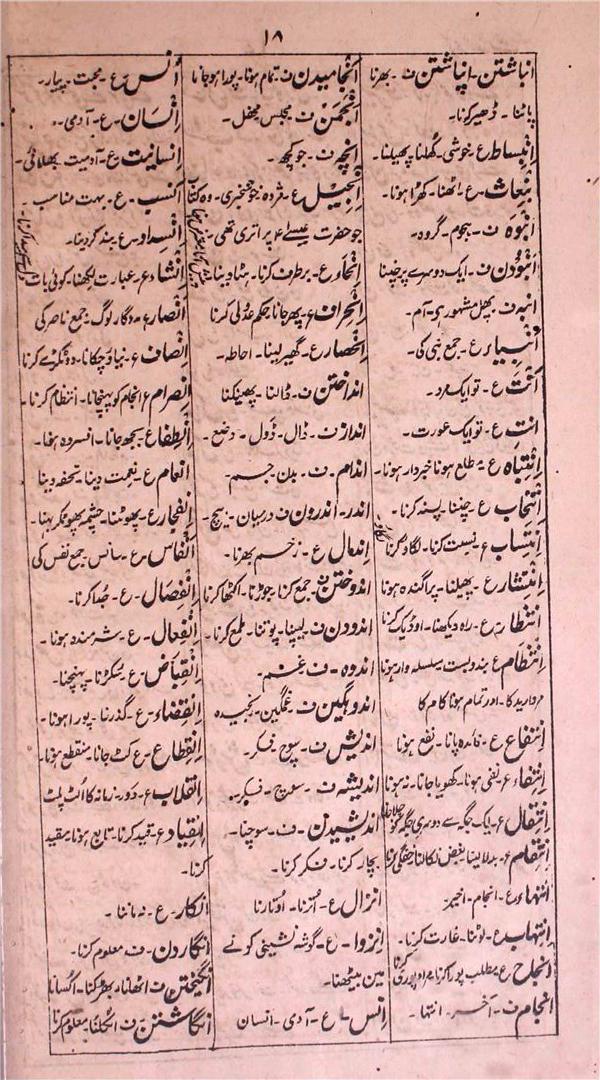 ۱۸
انباشتن۔ انپاشتن ف۔ بھرنا
پاٹنا۔ ڈھیر کرنا۔
اِنبساط ع خوشی۔ کھُلنا پھیلنا۔
بِعاث۔ ع۔ اٹھنا۔ کھڑا ہونا۔
انبوہ ف۔ ہجوم۔ گروہ۔
انبودن ف۔ ایک دوسرے پر چننا
انبہ ف۔ پھل مشہور ہے۔ آم۔
انبیاء ع۔ جمع نبی کی۔
انت ع۔ تو ایک مرد۔
انت ع۔ تو ایک عورت۔
اِنتباہ ع۔ مطلع ہونا خبردار ہونا۔
اِنتخاب ع۔ چننا۔ پسند کرنا۔
اِنتساب ع۔ نسبت کرنا۔ لگاؤ کرنا
اِنتشار ع۔ پھیلنا۔ پراگندہ ہونا
انتظار۔ ع۔ راہ دیکھنا۔ اوڈیک کرنا
اِنتظام ع بندوبست سلسلہ وار ہونا
مروارید کا۔ اور تمام ہونا کام کا
اِنتفاع ع۔ فائدہ پانا۔ نفع ہونا
اِنتفاء ع۔ نفی ہونا۔ کھویا جانا۔ نہ ہونا
اِنتقال ع۔ ایک جگہ سے دوسری جگہ کو چلا جانا
اِنتقام ع۔ بدلا لینا بغض نکالنا خفگی کرنا
انتہاء ع۔ انجام۔ اخیر۔
اِنتہاب ع۔ لوٹنا۔ غارت کرنا۔
اِنجاح ع۔ مطلب پورا کرنا مراد پوری کرنا
انجام ف۔ آخر۔ انتہا۔
انجامیدن ف تمام ہونا۔ پورا ہو جانا
انجمن ف مجلس محفل۔
انچہ ف۔ جو کچھ۔
اِنجیل ع۔ مژدہ خوشخبری۔ وہ کتاب
جو حضرت عیسےٰ ع پر اتری تھی۔
اِنحاء ع۔ برطرف کرنا۔ ہٹا دینا۔
اِنحراف ع۔ پھر جانا حکم عدولی کرنا
اِنحصار ع۔ گھیر لینا۔ احاطہ۔
انداختن ف۔ ڈالنا۔ پھینکنا
انداز ف۔ ڈال۔ ڈول۔ وضع۔
اندام۔ ف۔ بدن جسم۔
اندر۔ اندرون ف درمیان۔ بیچ۔
اِندمال ع۔ زخم بھرنا۔
اندوختن ف۔ جمع کرنا۔ جوڑنا۔ اکٹھا کرنا
اندودن ف۔ لیپنا۔ پوتنا۔ ملمع کرنا۔
اندوہ۔ ف غم۔
اندوہگین ف۔ غمگین۔ رنجیدہ
اندیش ف۔ سوچ۔ فکر۔
اندیشہ ف۔ سوچ۔ فکر۔
اندیشیدن۔ ف۔ سوچنا۔
بچار کرنا۔ فکر کرنا۔
انزال ع۔ اُترنا۔ اُوتارنا
اِنزوا۔ ع۔ گوشہ نشینی کونے
مین بیٹھنا۔
اِنس۔ ع۔ آدمی۔ انسان
اُنس۔ ع۔ محبت۔ پیار۔
اِنسان۔ ع۔ آدمی۔
اِنسانیت ع۔ آدمیت۔ بھلائی۔
انسب۔ ع۔ بہت مناسب۔
اِنسداد۔ ع۔ بند کر دینا۔
اِنشاء ع۔ عبارت لکھنا۔ کوئی بات
انصار ع۔ مددگار لوگ۔ جمع ناصر کی
اِنصاف ع۔ نیاؤ چکانا۔ دو ٹکڑے کرنا
اِنصرام ع انجام کو پہنچانا۔ انتظام کرنا۔
اِنطفاء ع۔ بجھ جانا۔ افسردہ ہونا۔
انعام ع۔ نعمت دینا۔ تحفہ دینا
اِنفجار ع۔ پھوٹنا۔ چشمہ پھوٹکر بہنا۔
انفاس۔ ع۔ سانس جمع نفس کی
اِنفصال۔ ع۔ جدا کرنا۔
اِنفعال۔ ع۔ شرمندہ ہونا۔
اِنقباض۔ ع۔ سُکڑنا۔ بھنچنا۔
اِنقضاء۔ ع۔ گذرنا۔ پورا ہونا۔
اِنقطاع۔ ع۔ کٹ جانا۔ منقطع ہونا۔
اِنقلاب ع۔ دور۔ زمانہ کا اُلٹ پلٹ
اِنقیاد ع۔ قید کرنا۔ تابع ہونا مقید
کرنا۔
اِنکار۔ ع۔ نہ ماننا۔
انگاردن۔ ف معلوم کرنا۔
انگیختن ف اٹھانا۔ بھڑکنا۔ اکسانا
انگاشتن۔ ف اٹکلنا۔ معلوم کرنا